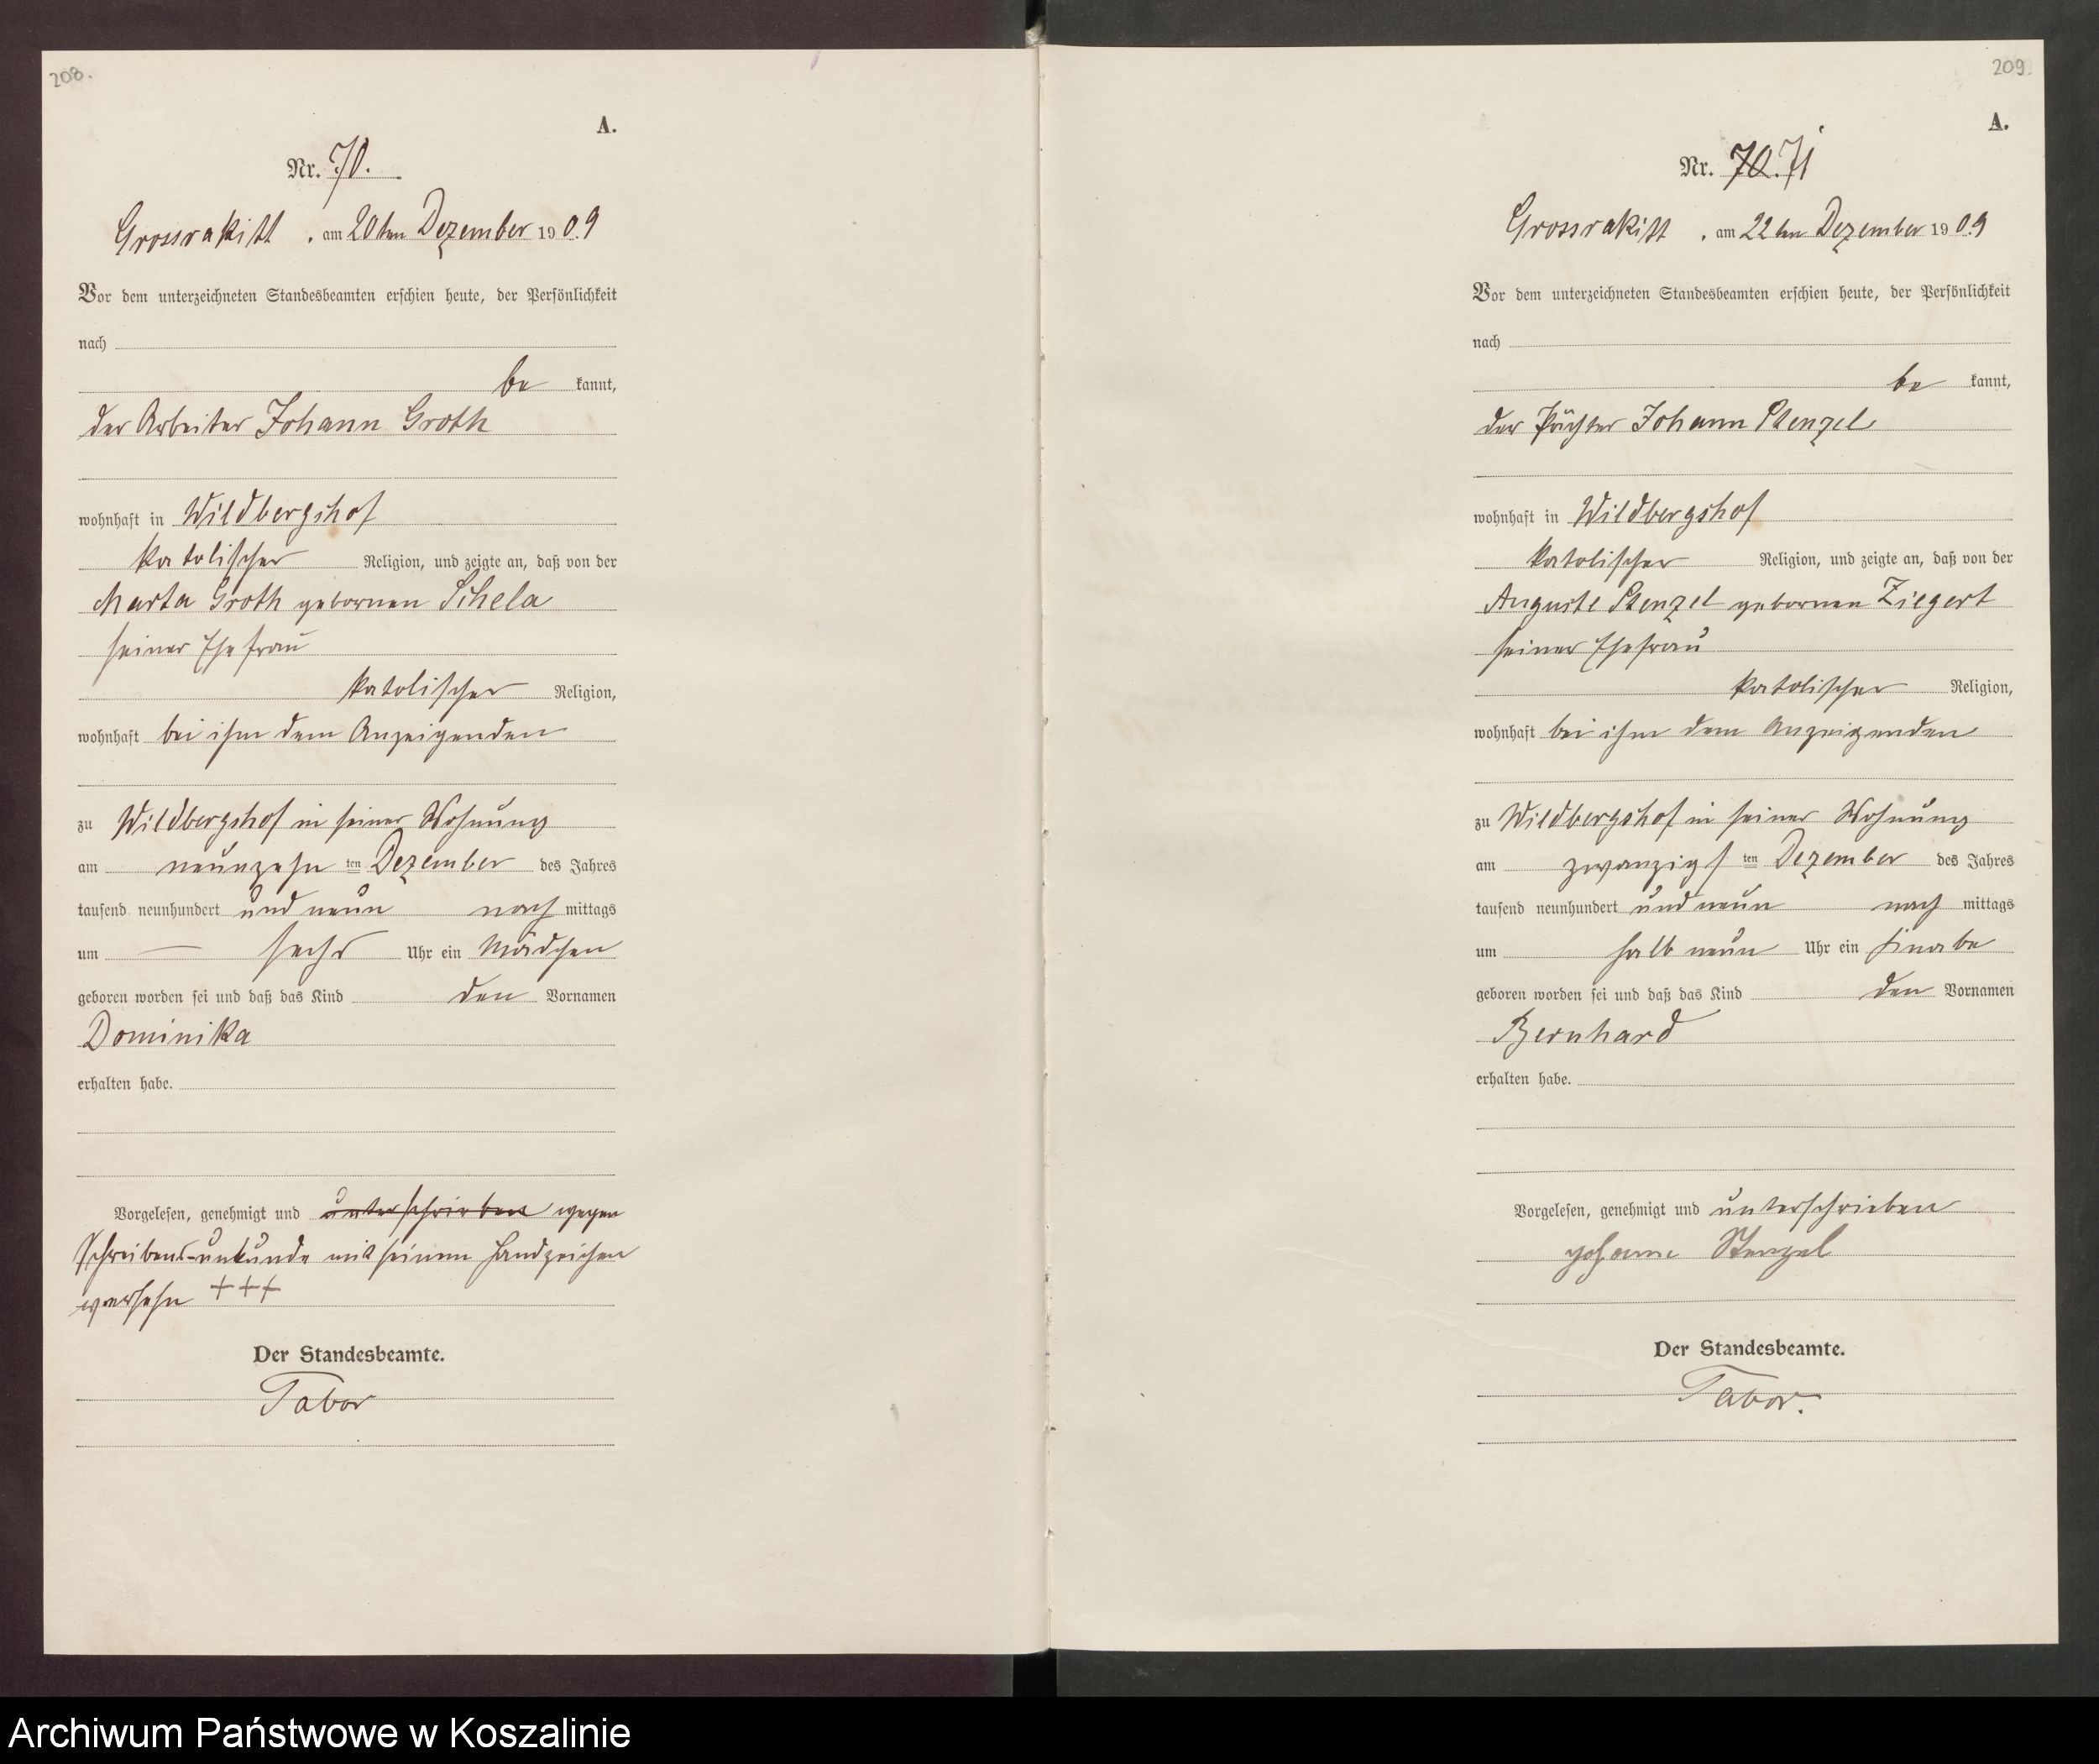 208.
A.
Nr. 70.
Grossrakitt, am 20ten Dezember 1909
Vor dem unterzeichneten Standesbeamten erschien heute, der Persönlichkeit
nach
be kannt,
der Arbeiter Johann Groth
wohnhaft in Wildbergshof
katolischer Religion, und zeigte an, daß von der
Marta Groth gebornen Schela
seiner Ehefrau
katolischer Religion,
wohnhaft bei ihm dem Anzeigenden
zu Wildbergshof in seiner Wohnung
am neunzehn ten Dezember des Jahres
tausend neunhundert und neun nach mittags
um — sechs Uhr ein Mädchen
geboren worden sei und daß das Kind den Vornamen
Dominika
erhalten habe.
Vorgelesen, genehmigt und unterschrieben wegen
Schreibens-unkunde mit seinem Handzeichen
versehn +++
Der Standesbeamte.
Tabor
209
A.
Nr. 70. 71
Grossrakitt, am 22ten Dezember 1909
Vor dem unterzeichneten Standesbeamten erschien heute, der Persönlichkeit
nach
be kannt,
der Pächter Johann Stenzel
wohnhaft in Wildbergshof
katolischer Religion, und zeigte an, daß von der
Auguste Stenzel gebornen Ziegert
seiner Ehefrau
katolischer Religion,
wohnhaft bei ihm dem Anzeigenden
zu Wildbergshof in seiner Wohnung
am zwanzigs ten Dezember des Jahres
tausend neunhundert und neun nach mittags
um halb neun Uhr ein Knabe
geboren worden sei und daß das Kind den Vornamen
Bernhard
erhalten habe.
Vorgelesen, genehmigt und unterschrieben
Johann Stenzel
Der Standesbeamte.
Tabor.
Archiwum Państwowe w Koszalinie